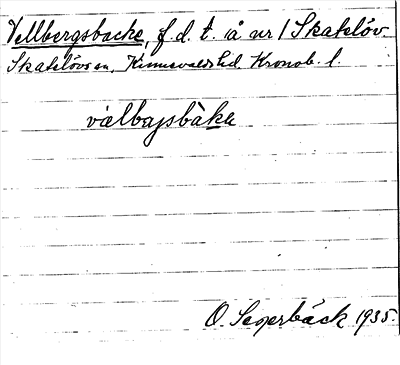 Vällbergsbacke, f.d. t. å nr 1 Skatelöv.
Skatelövs sn. Kinnevalds hd. Kronob. l.
O. Segerbäck 1935.